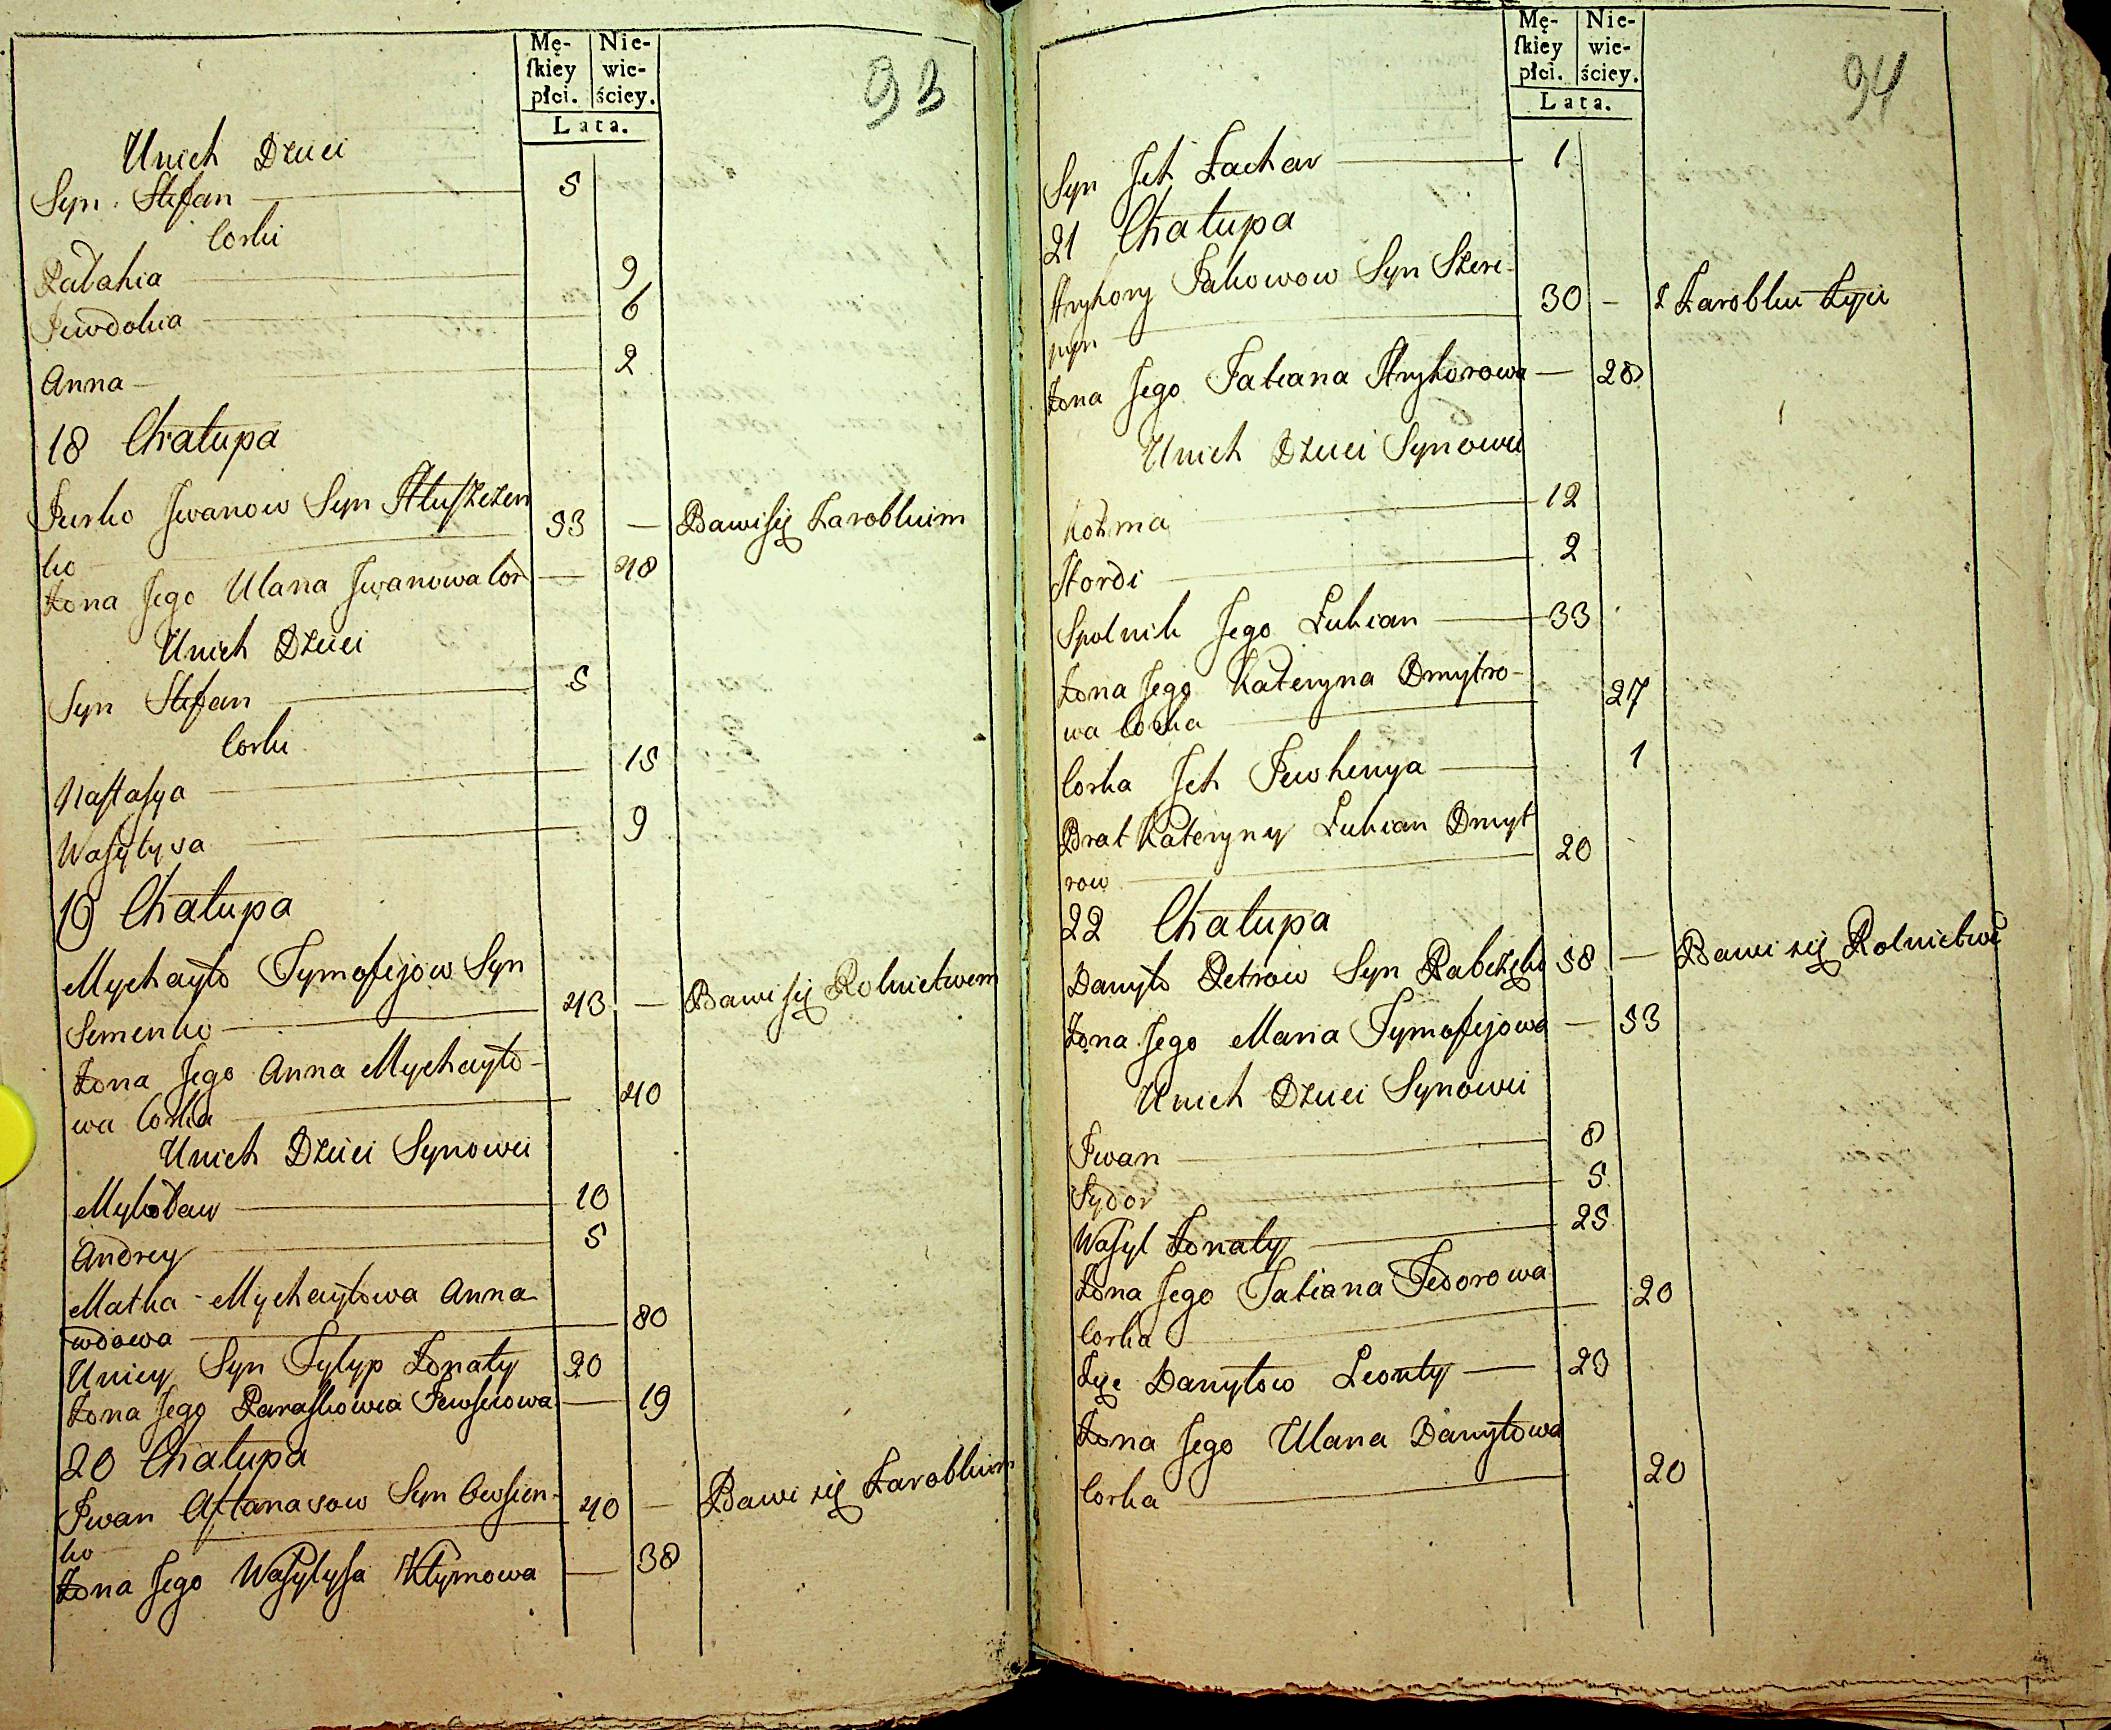 Mę-
ſkiey
płci.
Nie-
wie-
ściey.
Lata.
93
Unich Dzieci
Syn Stefan 5
Corki
Pałahia 9
Jewdokia 6
Anna 2
18 Chałupa
Jurko Jwanow Syn Hłuſzczen
ko 53 — Bawi ſię Zarobkiem
Żona Jego Ulana Jwanowa Cor — 48
Unich Dzieci
Syn Stefan 5
Corki
Naſtaſya 15
Waſyłysa 9
19 Chałupa
Mychayło Tymofijow Syn
Semenko 43 — Bawi ſię Rolnictwem
Żona Jego Anna Mychayło-
wa Corka 40
Unich Dzieci Synowei
Mykoław 10
Andrey 5
Matka Mychayłowa Anna
wdowa 80
Uniey Syn Fylyp Żonaty 20
Żona Jego Paraſkowia Jewsieiowa — 19
20 Chałupa
Jwan Aftanasow Syn Owsien-
ko 40 — Bawi się Zarobkiem
Żona Jego Waſylyſa Kłymowa — 38
Mę-
ſkiey
płci.
Nie-
wie-
ściey.
Lata.
94
Syn Jch Zachar 1
21 Chałupa
Hryhory Jakowow Syn Skere-
30 — z Zarobku Żyie
Żona Jego Tatiana Hryhorowa — 28
Unich Dzieci Synowei
Kożma 12
Hordi 2
Spolnik Jego Łukian 33
Żona Jego Kateryna Dmytro-
wa Corka 27
Corka Jch Jewhenya 1
Brat Kateryny Łukian Dmyt
row 20
22 Chałupa
Danyło Petrow Syn Babczuk 58 — Bawi się Rolnictwē
Żona Jego Maria Tymofijowa — 53
Unich Dzieci Synowei
Jwan 8
Sydor 5
Waſyl Żonaty 25
Żona Jego Tatiana Fedorowa
Corka 20
Danyłow Leonty 23
Żona Jego Ulana Danyłowa
Corka 20